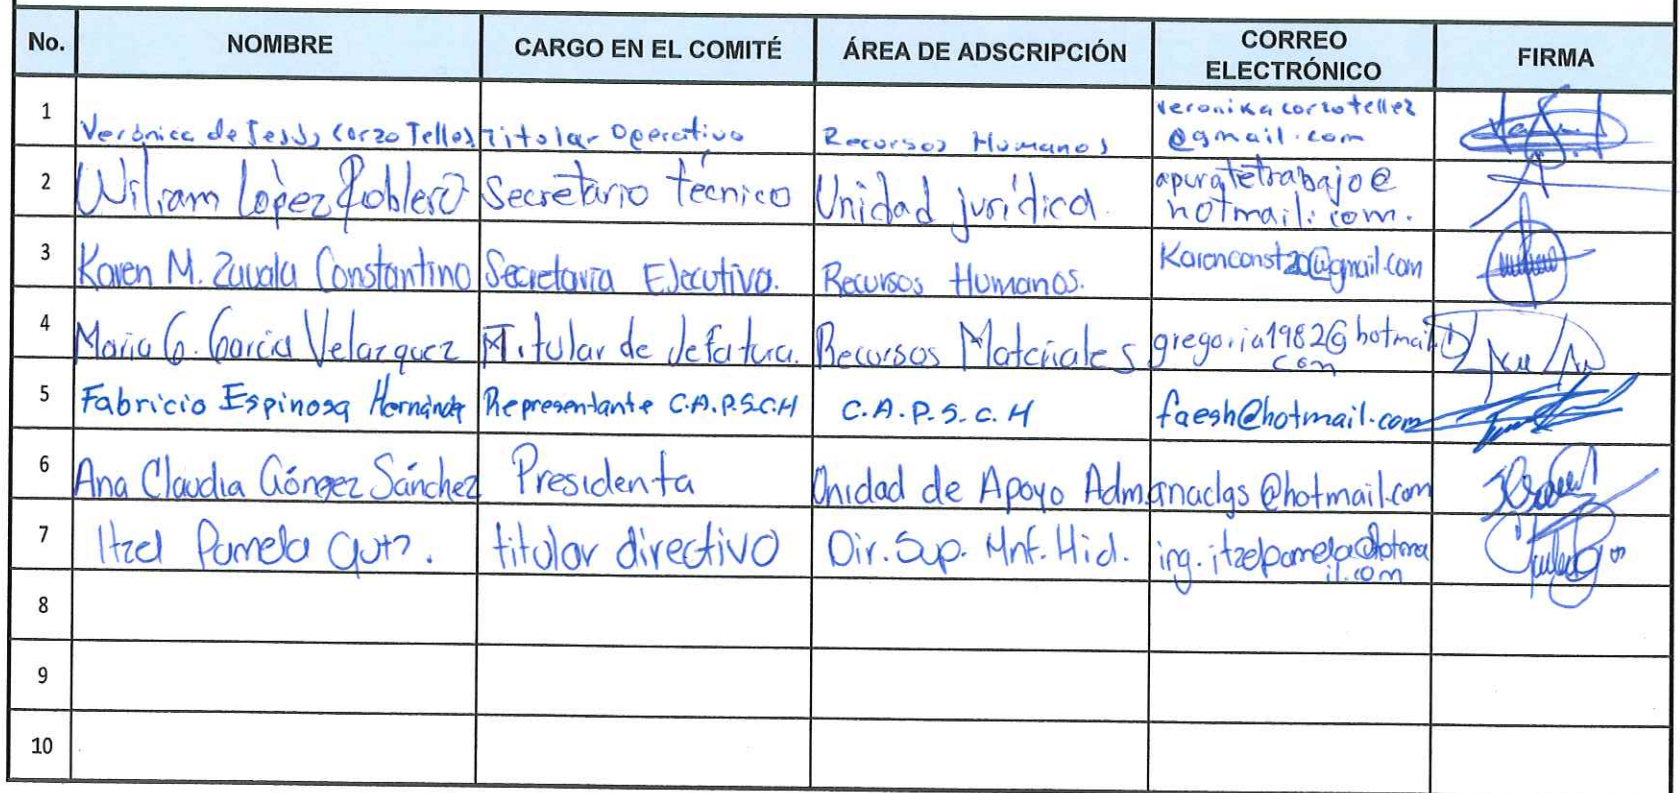 No. NOMBRE CARGO EN EL COMITÉ ÁREA DE ADSCRIPCIÓN CORREO ELECTRÓNICO FIRMA
1 Verónica de Jesús Corzo Telles Titular Operativo Recursos Humanos veronikacorzotellez@gmail.com
2 William López Roblero Secretario técnico Unidad jurídica. apuratetrabajo@hotmail.com.
3 Karen M. Zavala Constantino Secretaria Ejecutiva. Recursos Humanos. Karenconst20@gmail.com
4 Maria G. Garcia Velazquez Titular de Jefatura. Recursos Materiales gregoria1982@hotmail.com
5 Fabricio Espinosa Hernández Representante C.A.P.S.C.H C.A.P.S.C.H faesh@hotmail.com
6 Ana Claudia Gómez Sánchez Presidenta Unidad de Apoyo Adm. anaclgs@hotmail.com
7 Itzel Pamela Gutz. titular directivo Dir. Sup. Mnf. Hid. ing.itzelpamela@hotmail.com
8
9
10